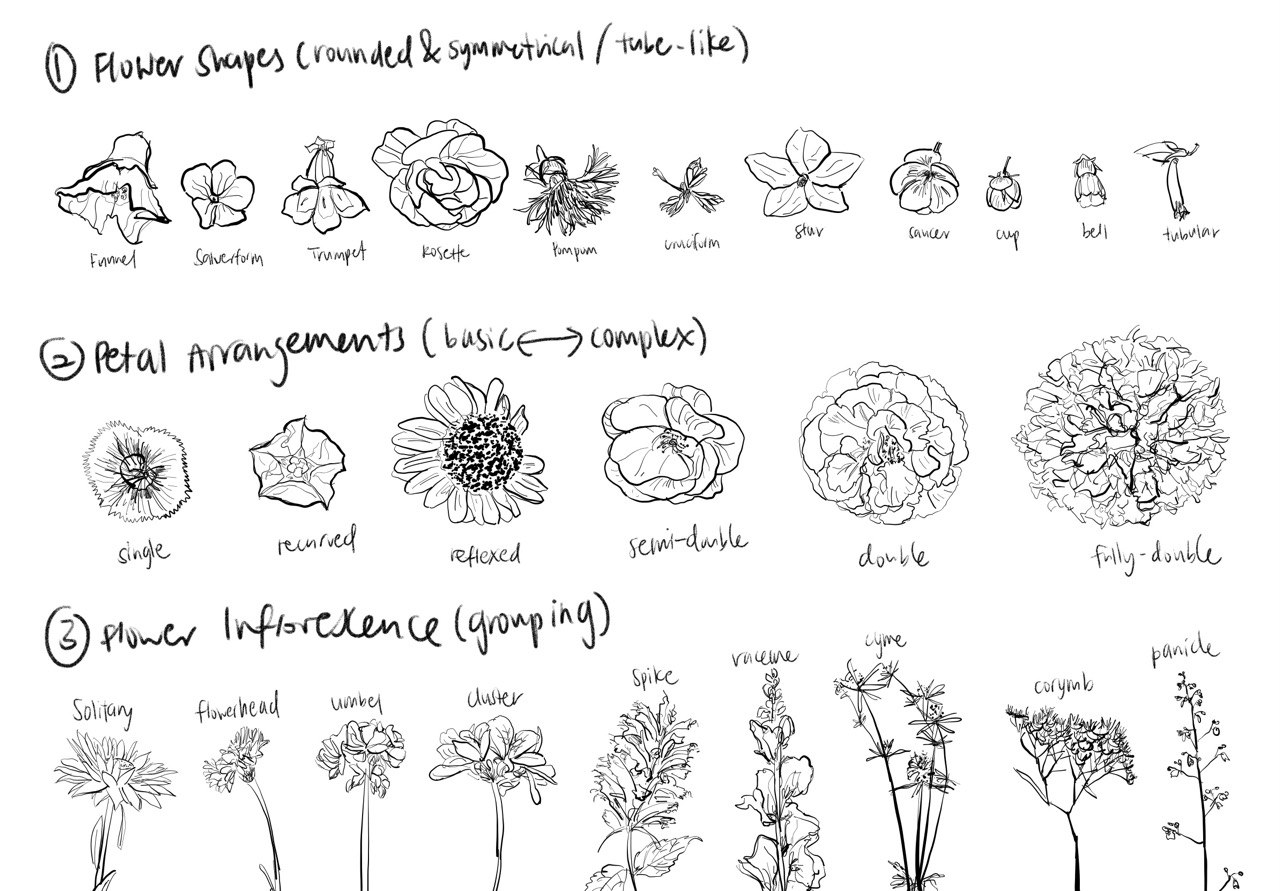 ① Flower Shapes (rounded & symmetrical / tube-like)
Funnel Salverform Trumpet Rosette Pompom cruciform star saucer cup bell tubular
② Petal Arrangements (basic ⟷ complex)
single recurved reflexed semi-double double fully-double
③ Flower Infloresence (grouping)
Solitary flowerhead umbel cluster spike raceme cyme corymb panicle